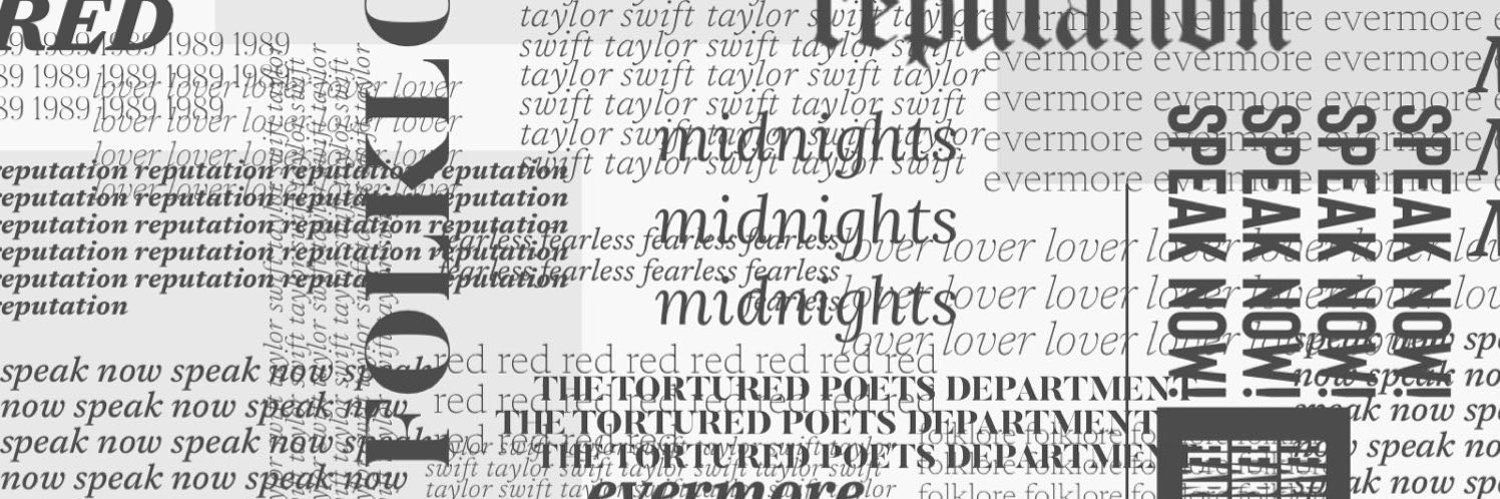 RED
89 1989 1989 1989 1989
89 1989 1989 1989 1989
89 1989 1989 1989
lover lover lover lover lover
lover lover lover lover lover
lover lover lover lover lover
lover lover lover lover lover
reputation reputation reputation reputation
reputation reputation reputation reputation
reputation reputation reputation reputation
reputation reputation reputation reputation
reputation reputation reputation reputation
reputation
speak now speak now speak
now speak now speak now
speak now speak now speak
now speak now speak now
taylor swift taylor swift taylor
FOLKLO
taylor swift taylor swift taylor
swift taylor swift taylor swift
taylor swift taylor swift taylor
swift taylor swift taylor swift
taylor swift taylor swift taylor
swift taylor swift taylor swift
reputation
midnights
midnights
midnights
fearless fearless fearless fearless
fearless fearless fearless fearless
fearless
red red red red red red red red
red red red red red red red red
red red red red
THE TORTURED POETS DEPARTMENT
THE TORTURED POETS DEPARTMENT
THE TORTURED POETS DEPARTMENT
taylor swift taylor swift taylor swift
swift taylor swift taylor swift taylor swift
taylor swift taylor swift taylor swift taylor
evermore
evermore evermore evermore
evermore evermore evermore
evermore evermore evermore
evermore evermore evermore
evermore evermore evermore
lover lover lover lover lover lover
lover lover lover lover lover lover
lover lover lover lover lover
SPEAK NOW!
SPEAK NOW!
SPEAK NOW!
SPEAK NOW!
folklore folklore folklore
folklore folklore folklore
folklore folklore folklore
speak now
now speak
speak now
now speak
speak now